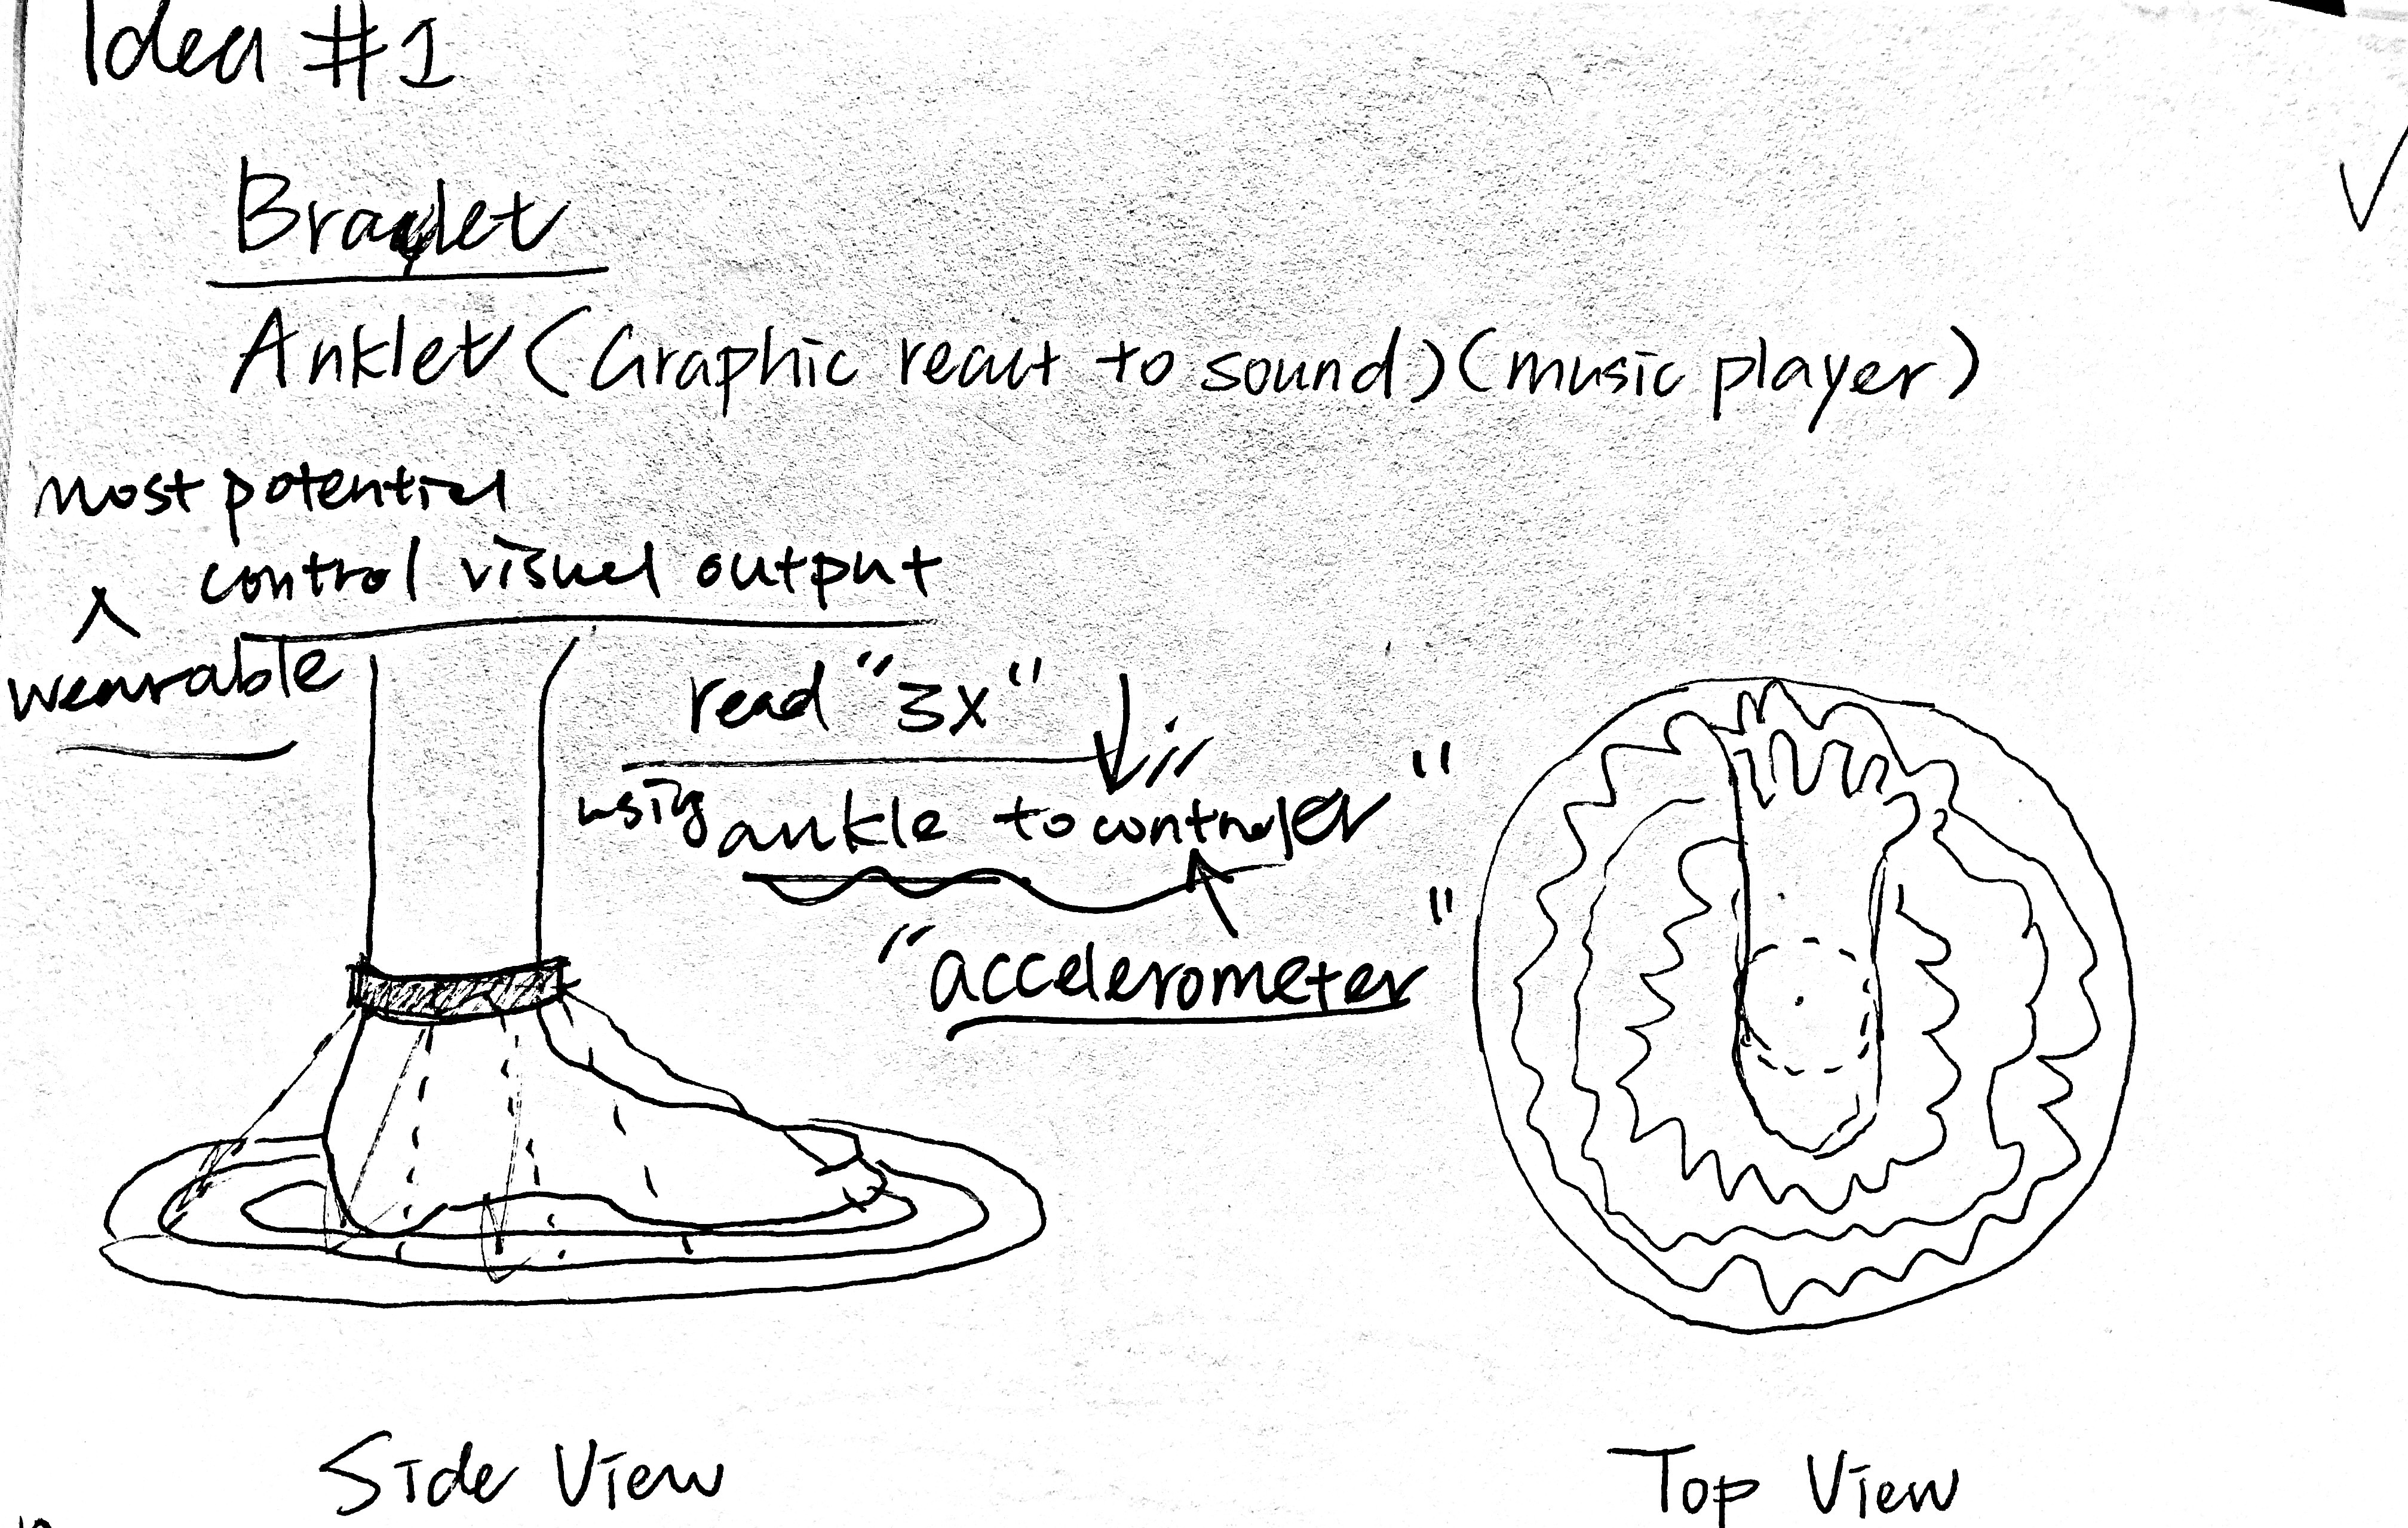 Idea #1
Braclet
Anklet (Graphic react to sound) (music player)
most potential
control visual output
wearable
read "3x"
using ankle to controler"
"accelerometer"
Side View
Top View